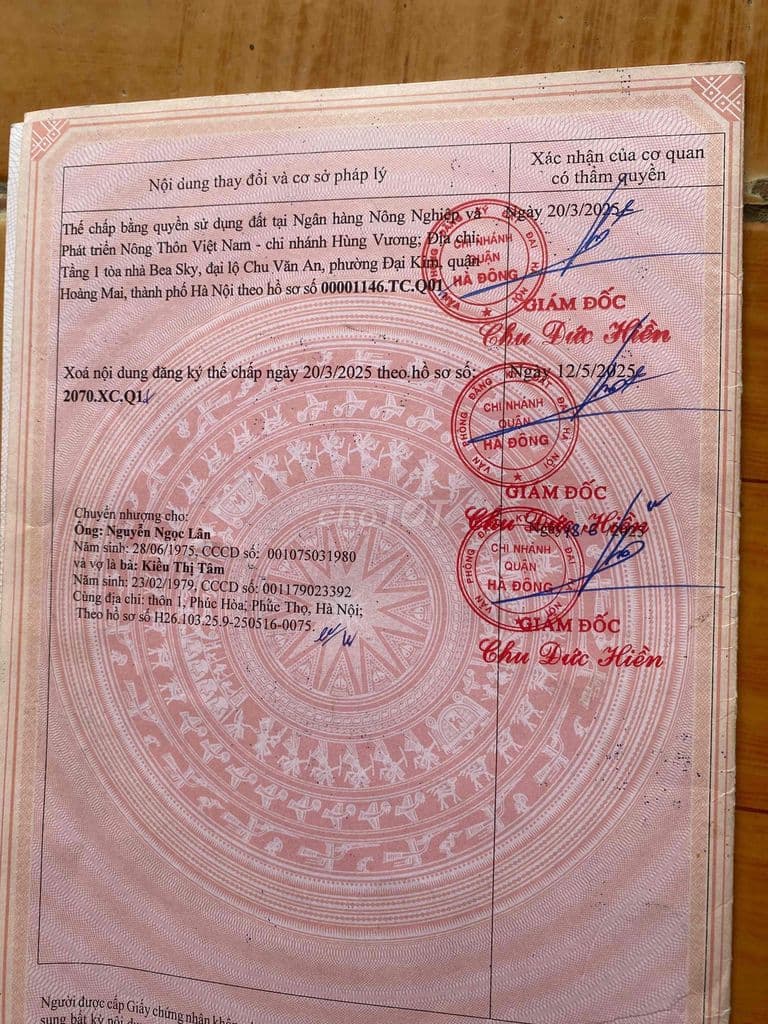 Nội dung thay đổi và cơ sở pháp lý
Xác nhận của cơ quan
có thẩm quyền
Thế chấp bằng quyền sử dụng đất tại Ngân hàng Nông Nghiệp và
Phát triển Nông Thôn Việt Nam - chi nhánh Hùng Vương; Địa chỉ:
Tầng 1 tòa nhà Bea Sky, đại lộ Chu Văn An, phường Đại Kim, quận
Hoàng Mai, thành phố Hà Nội theo hồ sơ số 00001146.TC.Q01
Ngày 20/3/2025
VĂN PHÒNG ĐĂNG KÝ ĐẤT ĐAI HÀ NỘI
CHI NHÁNH
QUẬN
HÀ ĐÔNG
GIÁM ĐỐC
Chu Đức Hiền
Xoá nội dung đăng ký thế chấp ngày 20/3/2025 theo hồ sơ số:
2070.XC.Q1
Ngày 12/5/2025
VĂN PHÒNG ĐĂNG KÝ ĐẤT ĐAI HÀ NỘI
CHI NHÁNH
QUẬN
HÀ ĐÔNG
GIÁM ĐỐC
Chu Đức Hiền
Chuyển nhượng cho:
Ông: Nguyễn Ngọc Lân
Năm sinh: 28/06/1975, CCCD số: 001075031980
và vợ là bà: Kiều Thị Tâm
Năm sinh: 23/02/1979, CCCD số: 001179023392
Cùng địa chỉ: thôn 1, Phúc Hòa, Phúc Thọ, Hà Nội;
Theo hồ sơ số H26.103.25.9-250516-0075.
Ngày
CHI NHÁNH
QUẬN
HÀ ĐÔNG
GIÁM ĐỐC
Chu Đức Hiền
Người được cấp Giấy chứng nhận
sung bất kỳ nội